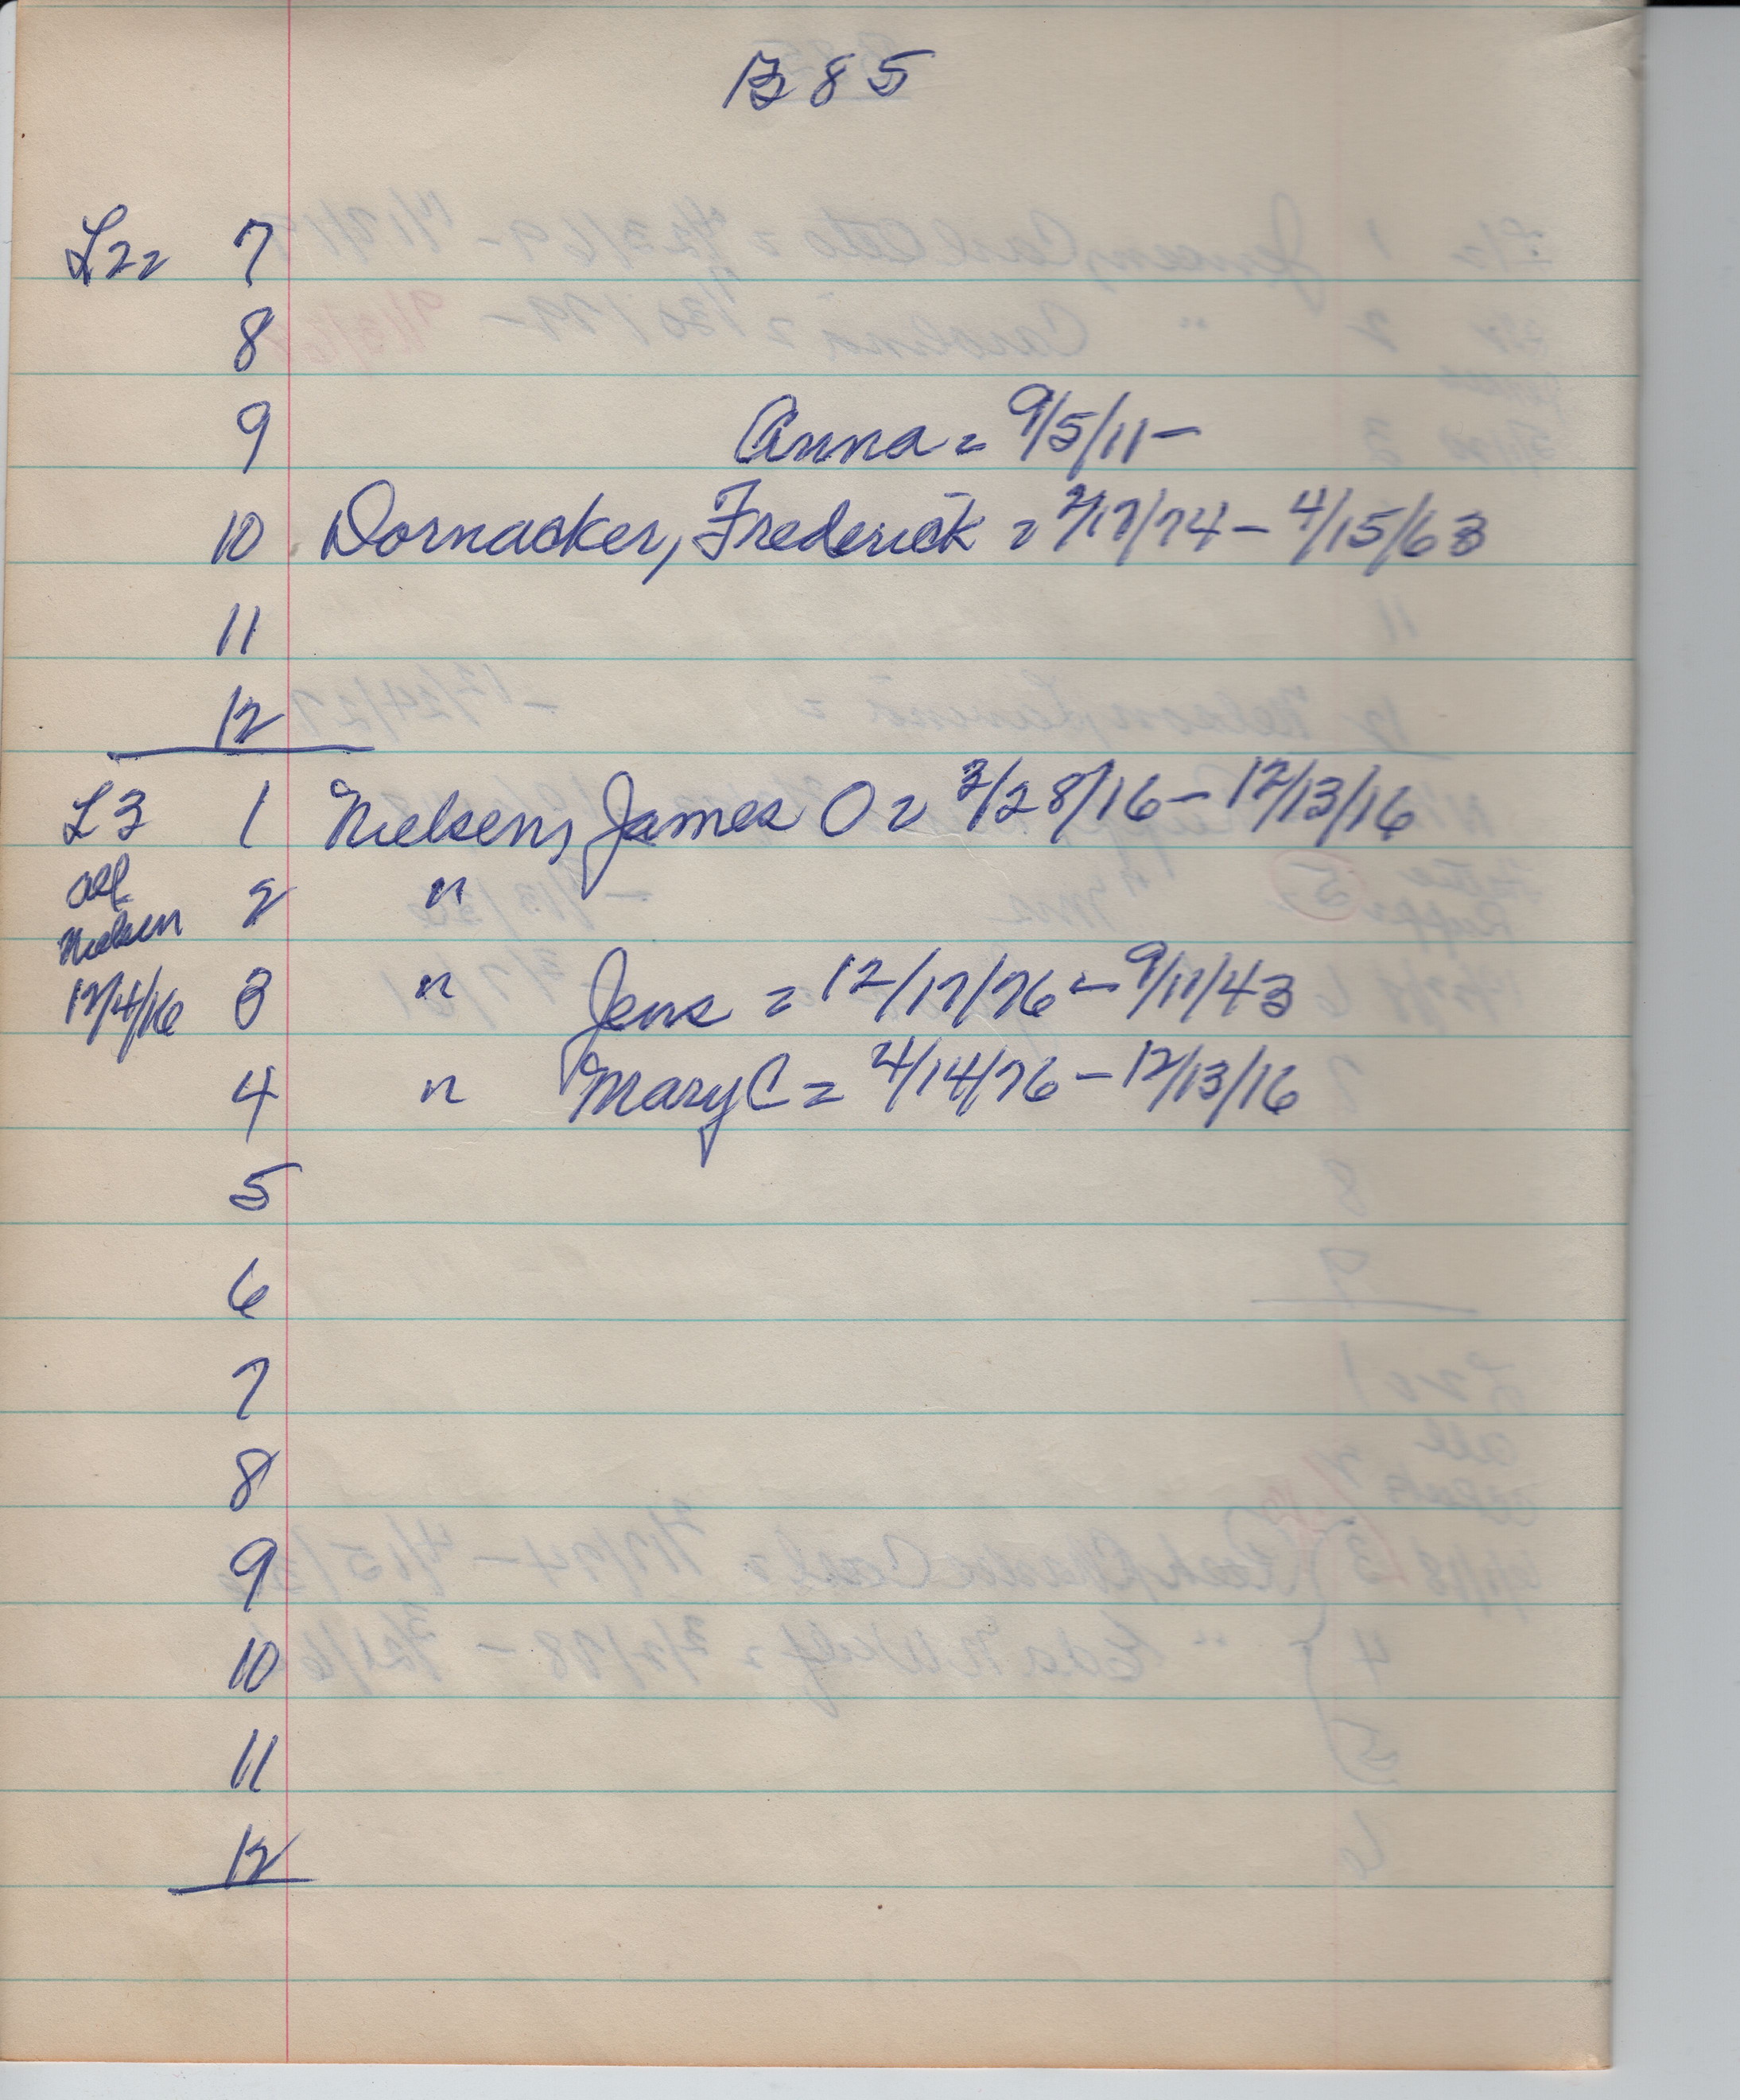 B 85
L2= 7
8
9 Anna = 9/5/11 -
10 Dornacker, Frederick = 2/17/74 - 4/15/63
11
12
L3 1 Nielsen, James O = 3/28/16 - 12/13/16
all 2 "
Nielsen
12/4/16 3 " Jens = 12/17/76 - 9/11/43
4 " Mary C = 4/14/76 - 12/13/16
5
6
7
8
9
10
11
12